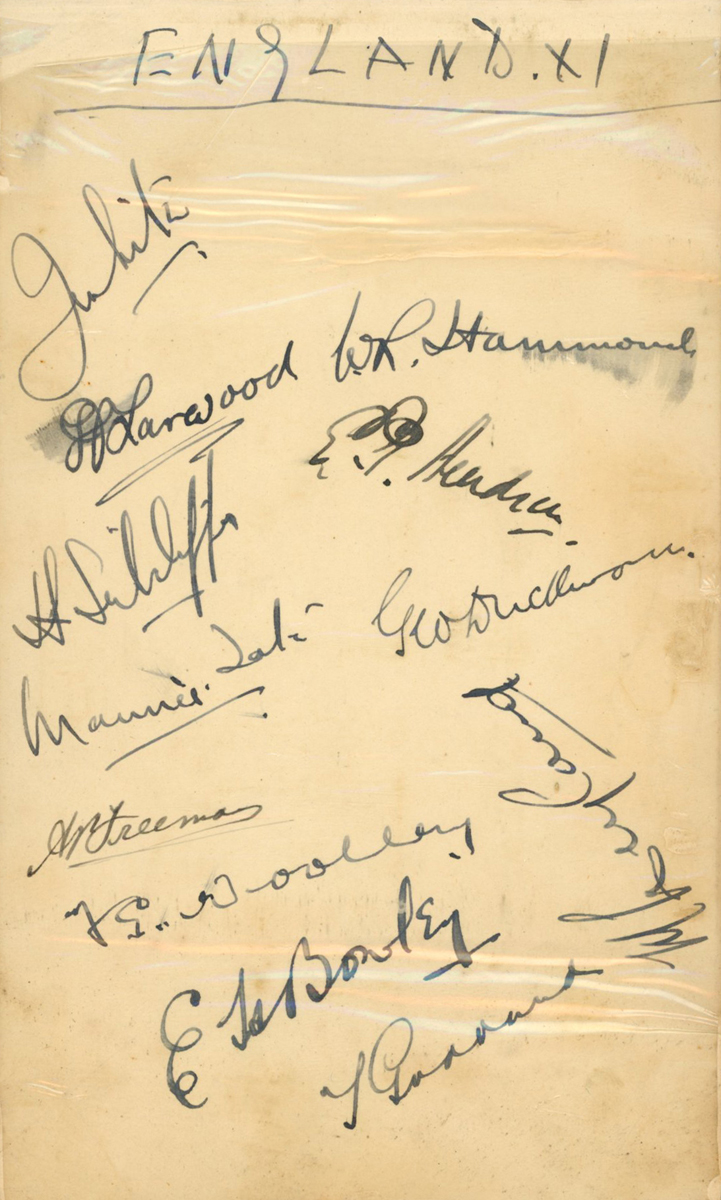 ENGLAND. XI
J. White
H Larwood
W.R. Hammond
E. P. Hendren.
H Sutcliffe
Geo Duckworth.
Maurice Tate
M. Leyland
AP Freeman
F E. Woolley
E H Bowley
T Goddard